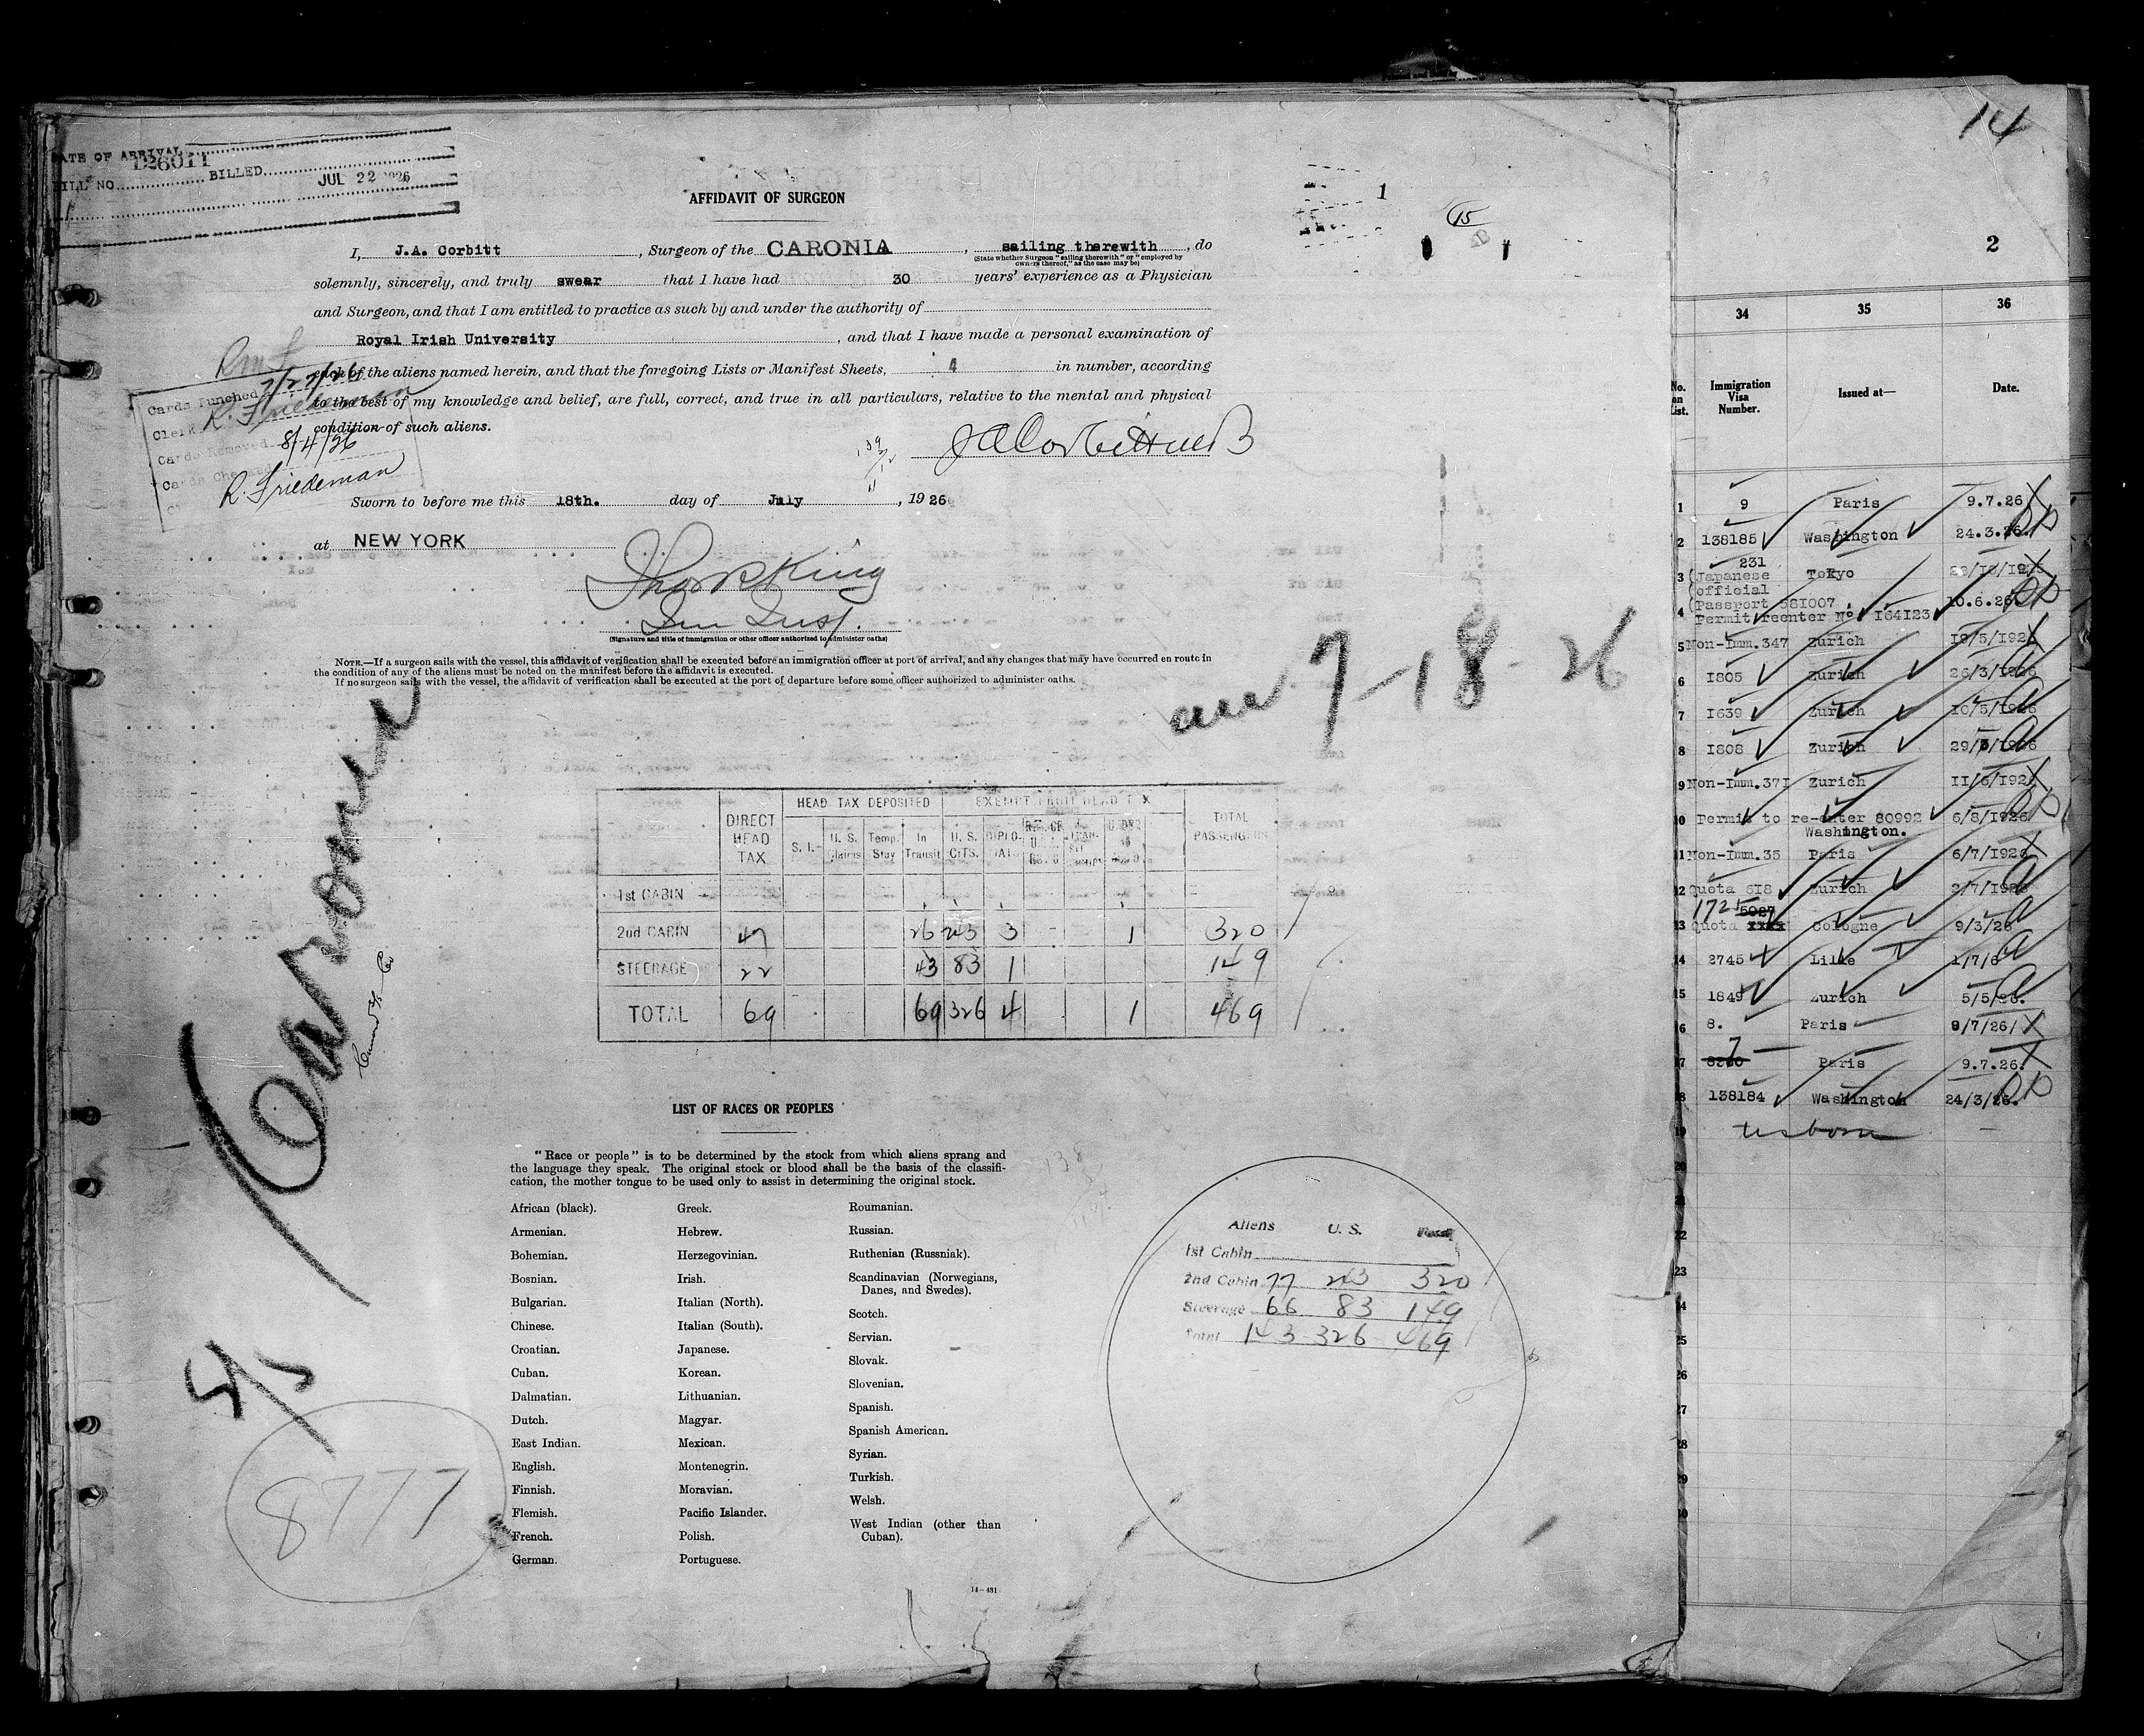 DATE OF ARRIVAL
126011
BILL NO. BILLED JUL 22 1926
AFFIDAVIT OF SURGEON
1
15
I, J.A. Corbitt, Surgeon of the CARONIA, sailing therewith, do
(State whether Surgeon "sailing therewith" or "employed by
owners thereof," as the case may be)
solemnly, sincerely, and truly swear that I have had 30 years' experience as a Physician
and Surgeon, and that I am entitled to practice as such by and under the authority of
Royal Irish University, and that I have made a personal examination of
each of the aliens named herein, and that the foregoing Lists or Manifest Sheets, 4 in number, according
to the best of my knowledge and belief, are full, correct, and true in all particulars, relative to the mental and physical
condition of such aliens.
Cards Punched 7/27/26
Clerk R. Friedeman
Cards Removed 8/4/26
Cards Checked
R. Friedeman
Sworn to before me this 18th. day of July, 1926
at NEW YORK
Imm Insp.
(Signature and title of immigration or other officer authorized to administer oaths)
NOTE.—If a surgeon sails with the vessel, this affidavit of verification shall be executed before an immigration officer at port of arrival, and any changes that may have occurred en route in
the condition of any of the aliens must be noted on the manifest before the affidavit is executed.
If no surgeon sails with the vessel, the affidavit of verification shall be executed at the port of departure before some officer authorized to administer oaths.
7-18-26
Caronia
Cunard SS Co
8777
DIRECT HEAD TAX HEAD TAX DEPOSITED EXEMPT FROM HEAD TAX TOTAL PASSENGERS
S. I. U. S. Claims Temp. Stay In Transit U. S. CITS. DIPLOMATS
1st CABIN
2nd CABIN 47 26 243 3 1 320
STEERAGE 22 43 83 1 149
TOTAL 69 69 326 4 1 469
LIST OF RACES OR PEOPLES
"Race or people" is to be determined by the stock from which aliens sprang and
the language they speak. The original stock or blood shall be the basis of the classifi-
cation, the mother tongue to be used only to assist in determining the original stock.
African (black).
Armenian.
Bohemian.
Bosnian.
Bulgarian.
Chinese.
Croatian.
Cuban.
Dalmatian.
Dutch.
East Indian.
English.
Finnish.
Flemish.
French.
German.
Greek.
Hebrew.
Herzegovinian.
Irish.
Italian (North).
Italian (South).
Japanese.
Korean.
Lithuanian.
Magyar.
Mexican.
Montenegrin.
Moravian.
Pacific Islander.
Polish.
Portuguese.
Roumanian.
Russian.
Ruthenian (Russniak).
Scandinavian (Norwegians,
Danes, and Swedes).
Scotch.
Servian.
Slovak.
Slovenian.
Spanish.
Spanish American.
Syrian.
Turkish.
Welsh.
West Indian (other than
Cuban).
14-431
Aliens U. S. Total
1st Cabin
2nd Cabin 77 243 320
Steerage 66 83 149
Total 143 326 469
14
2
34 35 36
No. on List. Immigration Visa Number. Issued at— Date.
1 9 Paris 9.7.26
2 138185 Washington 24.3.26.
231
3 (Japanese Tokyo
(official
(Passport 581007
4 Permit reenter No. 164123 10.6.26
5 Non-Imm.347 Zurich 19/5/1926
6 1805 Zurich 26/3/1926
7 1639 Zurich 10/5/1926
8 1808 Zurich 29/3/1926
9 Non-Imm.371 Zurich 11/6/1926
10 Permit to re-enter 80992 6/8/1926
Washington.
11 Non-Imm.35 Paris 6/7/1926
12 Quota 618 Zurich 2/7/1926
1725 5027
13 Quota xxxx Cologne 9/3/26
14 2745 Lille 1/7/6
15 1849 Zurich 5/5/26.
6 8. Paris 9/7/26/
7
7 Paris 9.7.26.
8 138184 Washington 24/3/26.
19 usborn
20
21
22
23
24
25
26
27
28
29
30